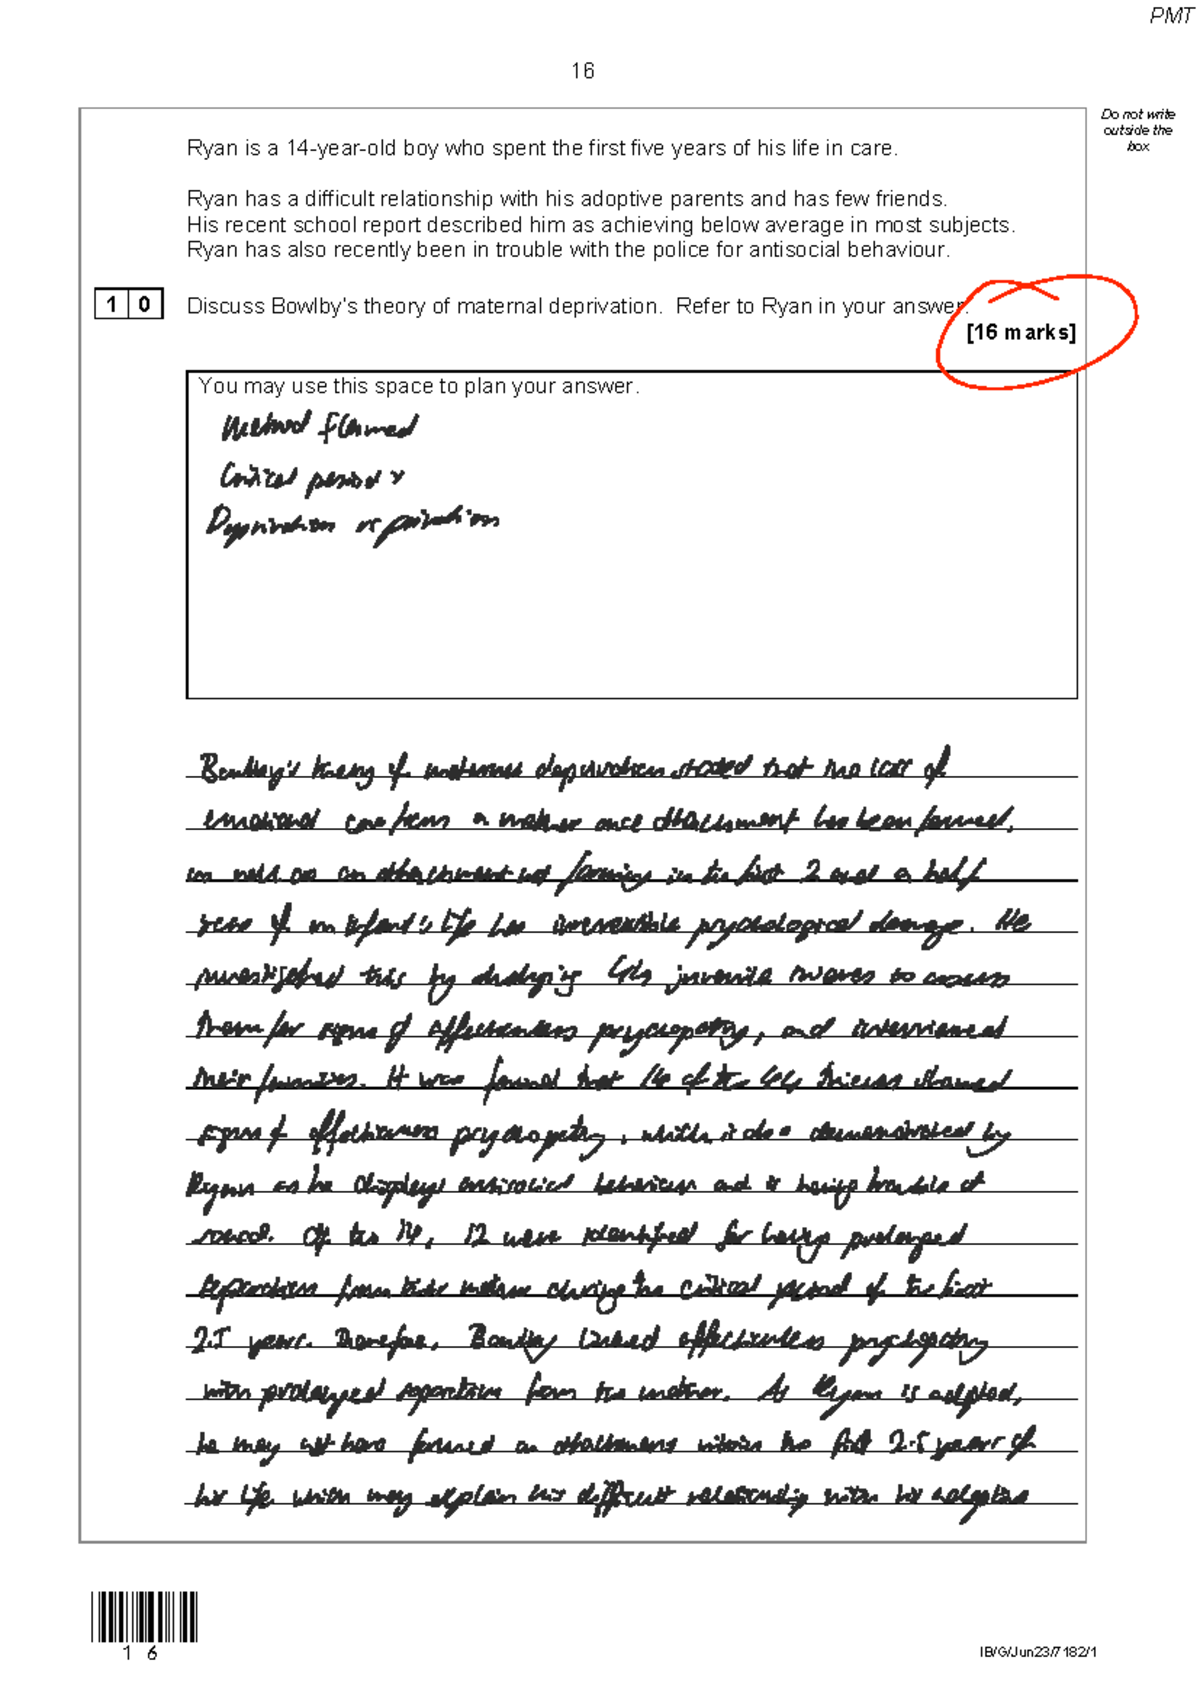 PMT
16
Do not write
outside the
box
Ryan is a 14-year-old boy who spent the first five years of his life in care.
Ryan has a difficult relationship with his adoptive parents and has few friends.
His recent school report described him as achieving below average in most subjects.
Ryan has also recently been in trouble with the police for antisocial behaviour.
1 0 Discuss Bowlby's theory of maternal deprivation. Refer to Ryan in your answer.
[16 marks]
You may use this space to plan your answer.
Method flawed
Critical period x
Deprivation vs privation
Bowlby's theory of maternal deprivation stated that the loss of
emotional care from a mother once attachment has been formed,
as well as an attachment not forming in the first 2 and a half
years of an infant's life has irreversible psychological damage. He
investigated this by studying 44 juvenile thieves to assess
them for signs of affectionless psychopathy, and interviewed
their families. It was found that 14 of the 44 thieves showed
signs of affectionless psychopathy, which is also demonstrated by
Ryan as he displays antisocial behaviour and is having trouble at
school. Of the 14, 12 were identified for having prolonged
separation from their mother during the critical period of the first
2.5 years. Therefore, Bowlby linked affectionless psychopathy
with prolonged separation from the mother. As Ryan is adopted,
he may not have formed an attachment within the first 2.5 years of
his life which may explain his difficult relationship with his adoptive
1 6
IB/G/Jun23/7182/1